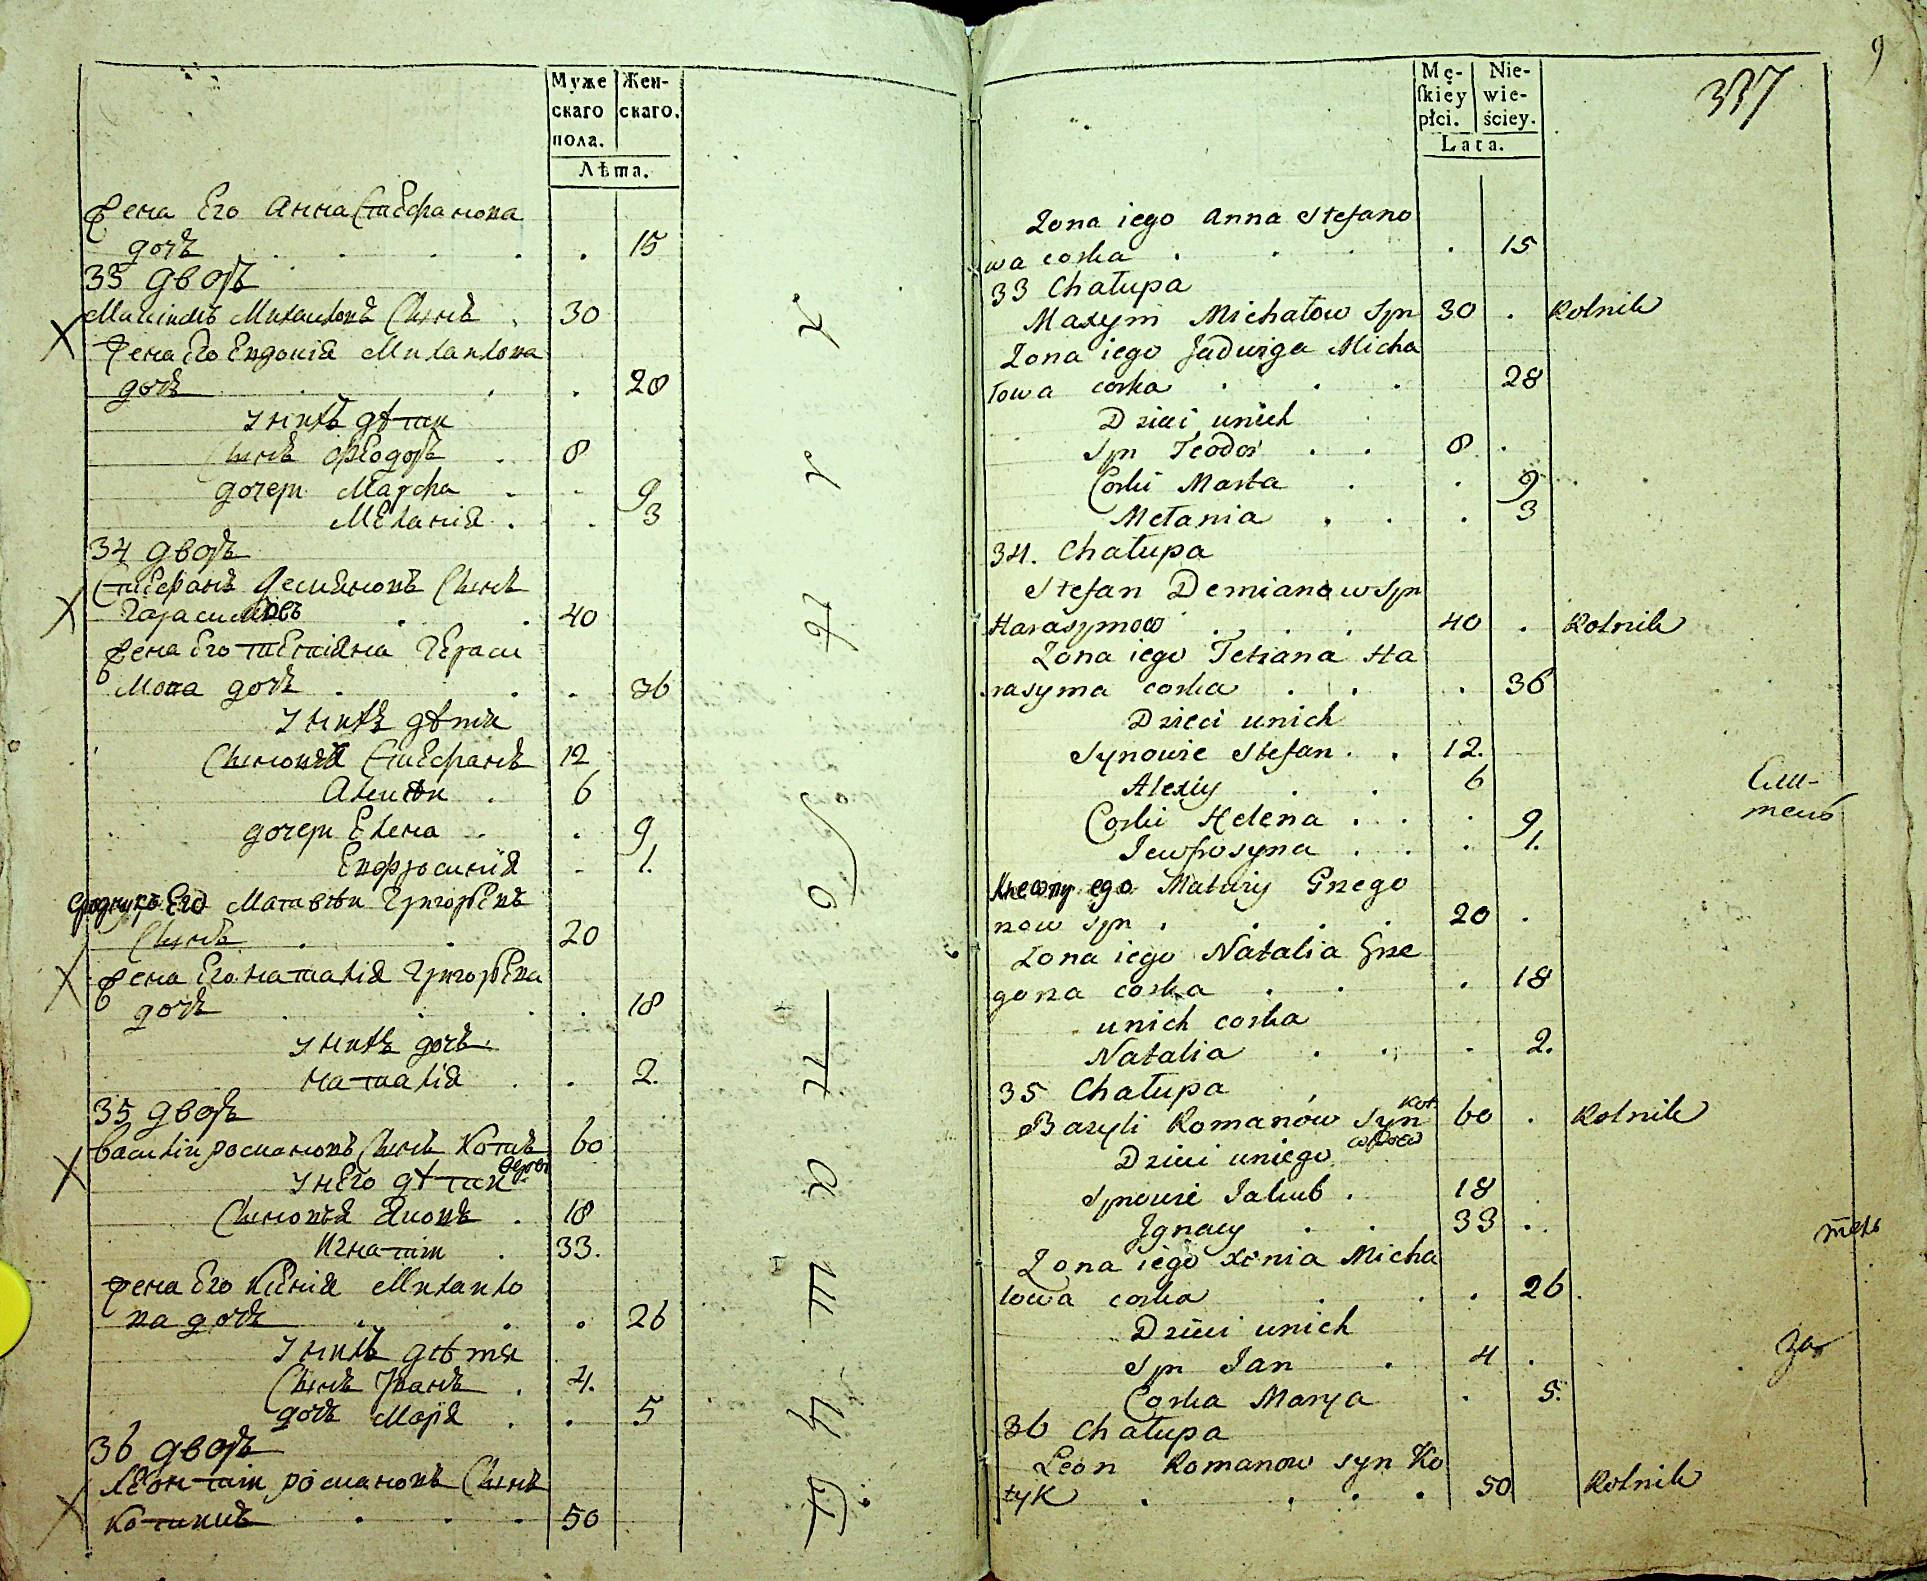 Муже
скаго
пола.
Жен-
скаго.
Лѣта.
Жена Его Анна Стефанова
дочь 15
33 дворъ
Максимъ Михайловъ Сынъ 30
Жена Его Евдокія Михайлова
дочь 28
У нихъ дѣти
Сынъ Феодоръ 8
дочери Марфа 9
Меланія 3
34 дворъ
Стефанъ Демяновъ Сынъ
Гарасимовъ 40
Жена Его Тетіяна Гераси
мова дочь 36
У нихъ дѣти
Сыновья Стефанъ 12
Алексѣй 6
дочери Елена 9
Евфросинія 1.
Сродникъ Его Матвѣй Григорьевъ
Сынъ 20
Жена Его Наталія Григорьева
дочь 18
У нихъ дочь
Наталія 2.
35 дворъ
Василій Романовъ Сынъ Котикъ 60
вдовъ
У него дѣти
Сыновья Яковъ 18
Игнатій 33.
Жена Его Ксенія Михайло
ва дочь 26
У нихъ дѣти
Сынъ Иванъ 4.
дочь Марія 5
36 дворъ
Леонтій Романовъ Сынъ
Котикъ 50
9
337
Mę-
ſkiey
płci.
Nie-
wie-
ściey.
Lata.
Zona iego Anna Stefano
wa corka 15
33 Chałupa
Maxym Michałow Syn 30 Rolnik
Zona iego Jadwiga Micha
łowa corka 28
Dzieci unich
Syn Teodor 8
Corki Marta 9
Mełania 3
34. Chałupa
Stefan Demianow Syn
Harasymow 40 Rolnik
Zona iego Tetiana Ha
rasyma corka 36
Dzieci unich
Synowie Stefan 12.
Alexiy 6
Corki Helena 9
Jewfrosyna 1.
Krewny ego Matwiy Grzego
rzow Syn 20
Zona iego Natalia Grze
gorza corka 18
unich corka
Natalia 2.
35 Chałupa
Bazyli Romanów Syn Kot 60 Rolnik
wdow
Dzieci uniego
Synowie Jakub 18
Ignacy 33
Zona iego Xenia Micha
łowa corka 26
Dzieci unich
Syn Jan 4
Corka Marya 5.
36 Chałupa
Leon Romanow syn Ko
tyk 50 Rolnik
за